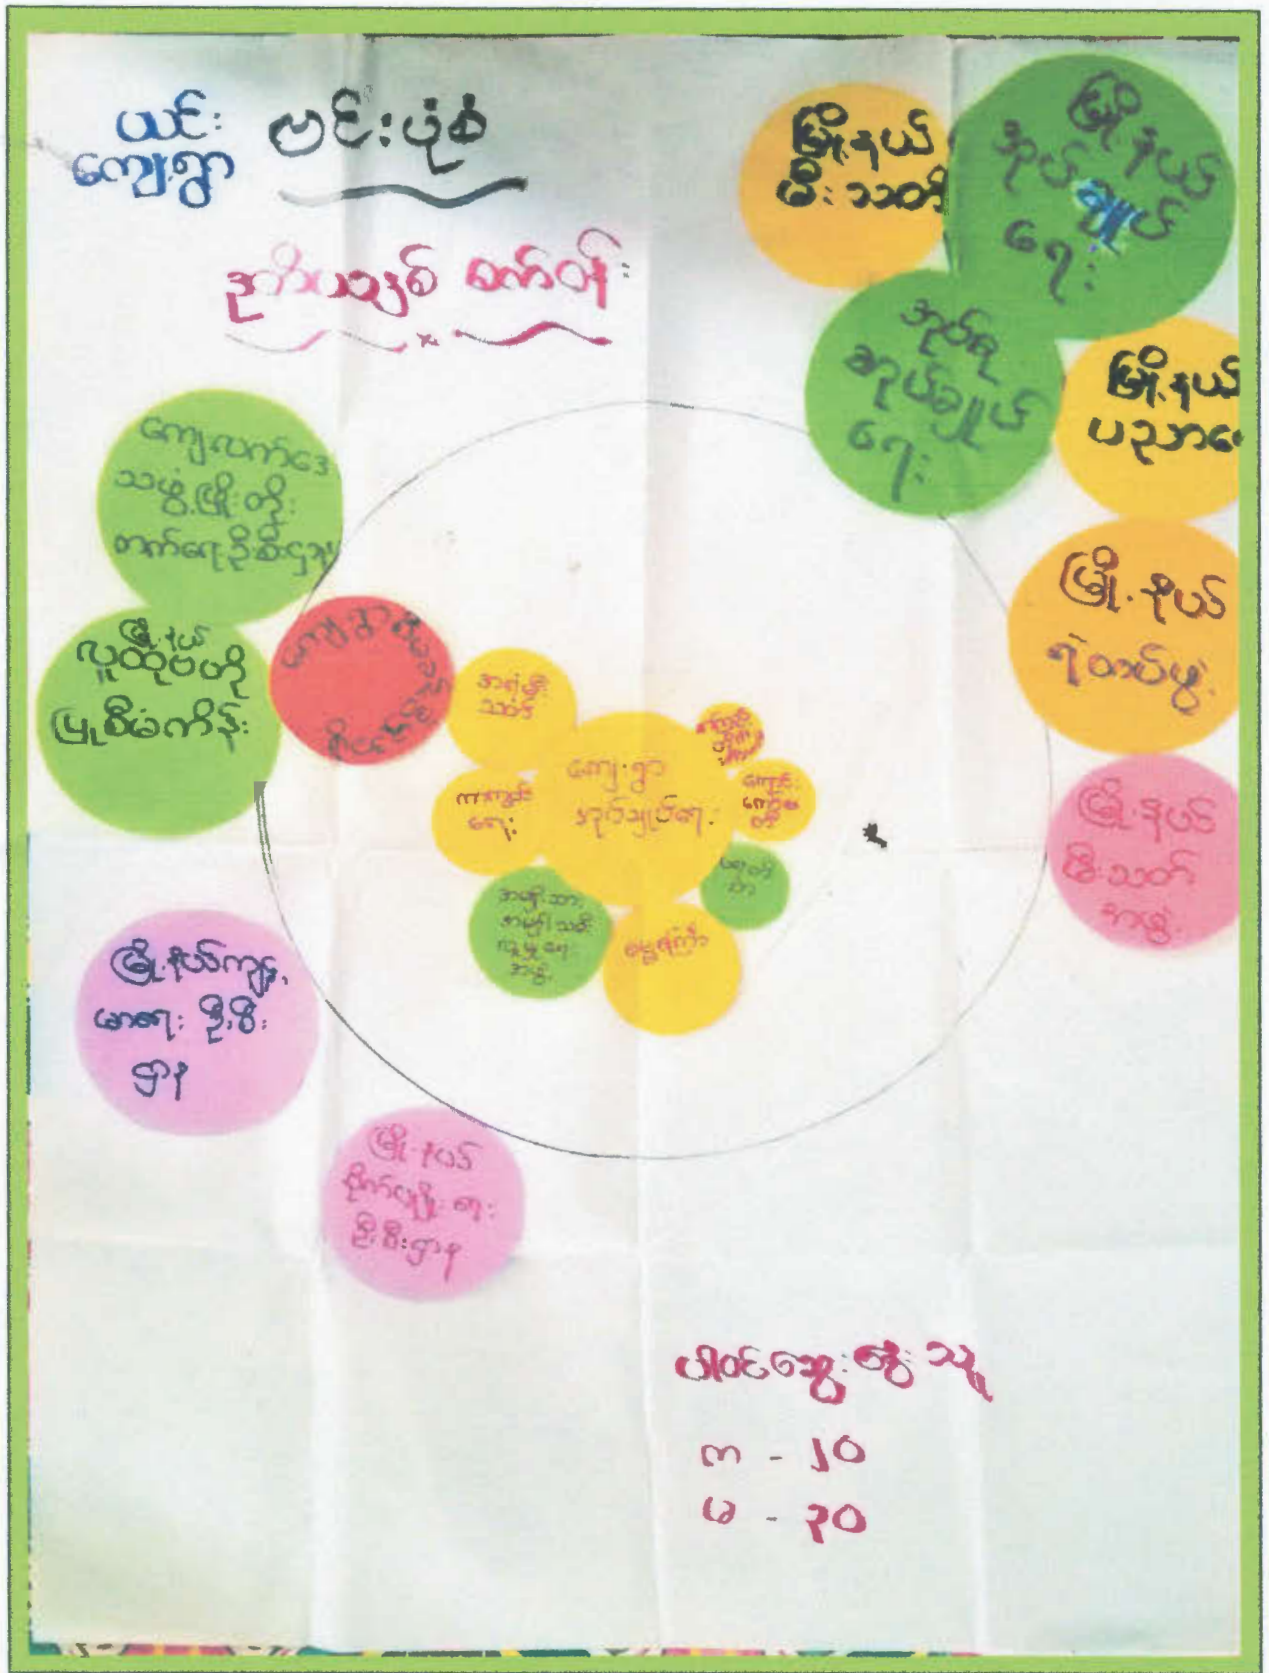 ယင်း ဗင်းပုံစံ
ကျေးရွာ
ဒုတိယနှစ် စက်ဝန်း
မြို့နယ်
မီးသတ်
မြို့နယ်
အုပ်ချုပ်
ရေး
အုပ်စု
အုပ်ချုပ်
ရေး
မြို့နယ်
ပညာရေ
မြို့နယ်
ရဲတပ်ဖွဲ့
မြို့နယ်
မီးသတ်
အဖွဲ့
ကျေးလက်ဒေ
သဖွံ့ဖြိုးတိုး
တက်ရေးဦးစီးဌာန
မြို့နယ်
လူထုဗဟို
ပြုစီမံကိန်း
အရံမီး
သတ်
ကျေးရွာ
အုပ်ချုပ်ရေး
ကာကွယ်
ရေး
အမျိုးသား
အမျိုးသမီး
ရေး
အဖွဲ့
မြို့နယ်ကျန်း
မာရေး ဦးစီး
ဌာန
မြို့နယ်
စိုက်ပျိုးရေး
ဦးစီးဌာန
ပါဝင်ဆွေးနွေးသူ
က - ၂၀
မ - ၃၀